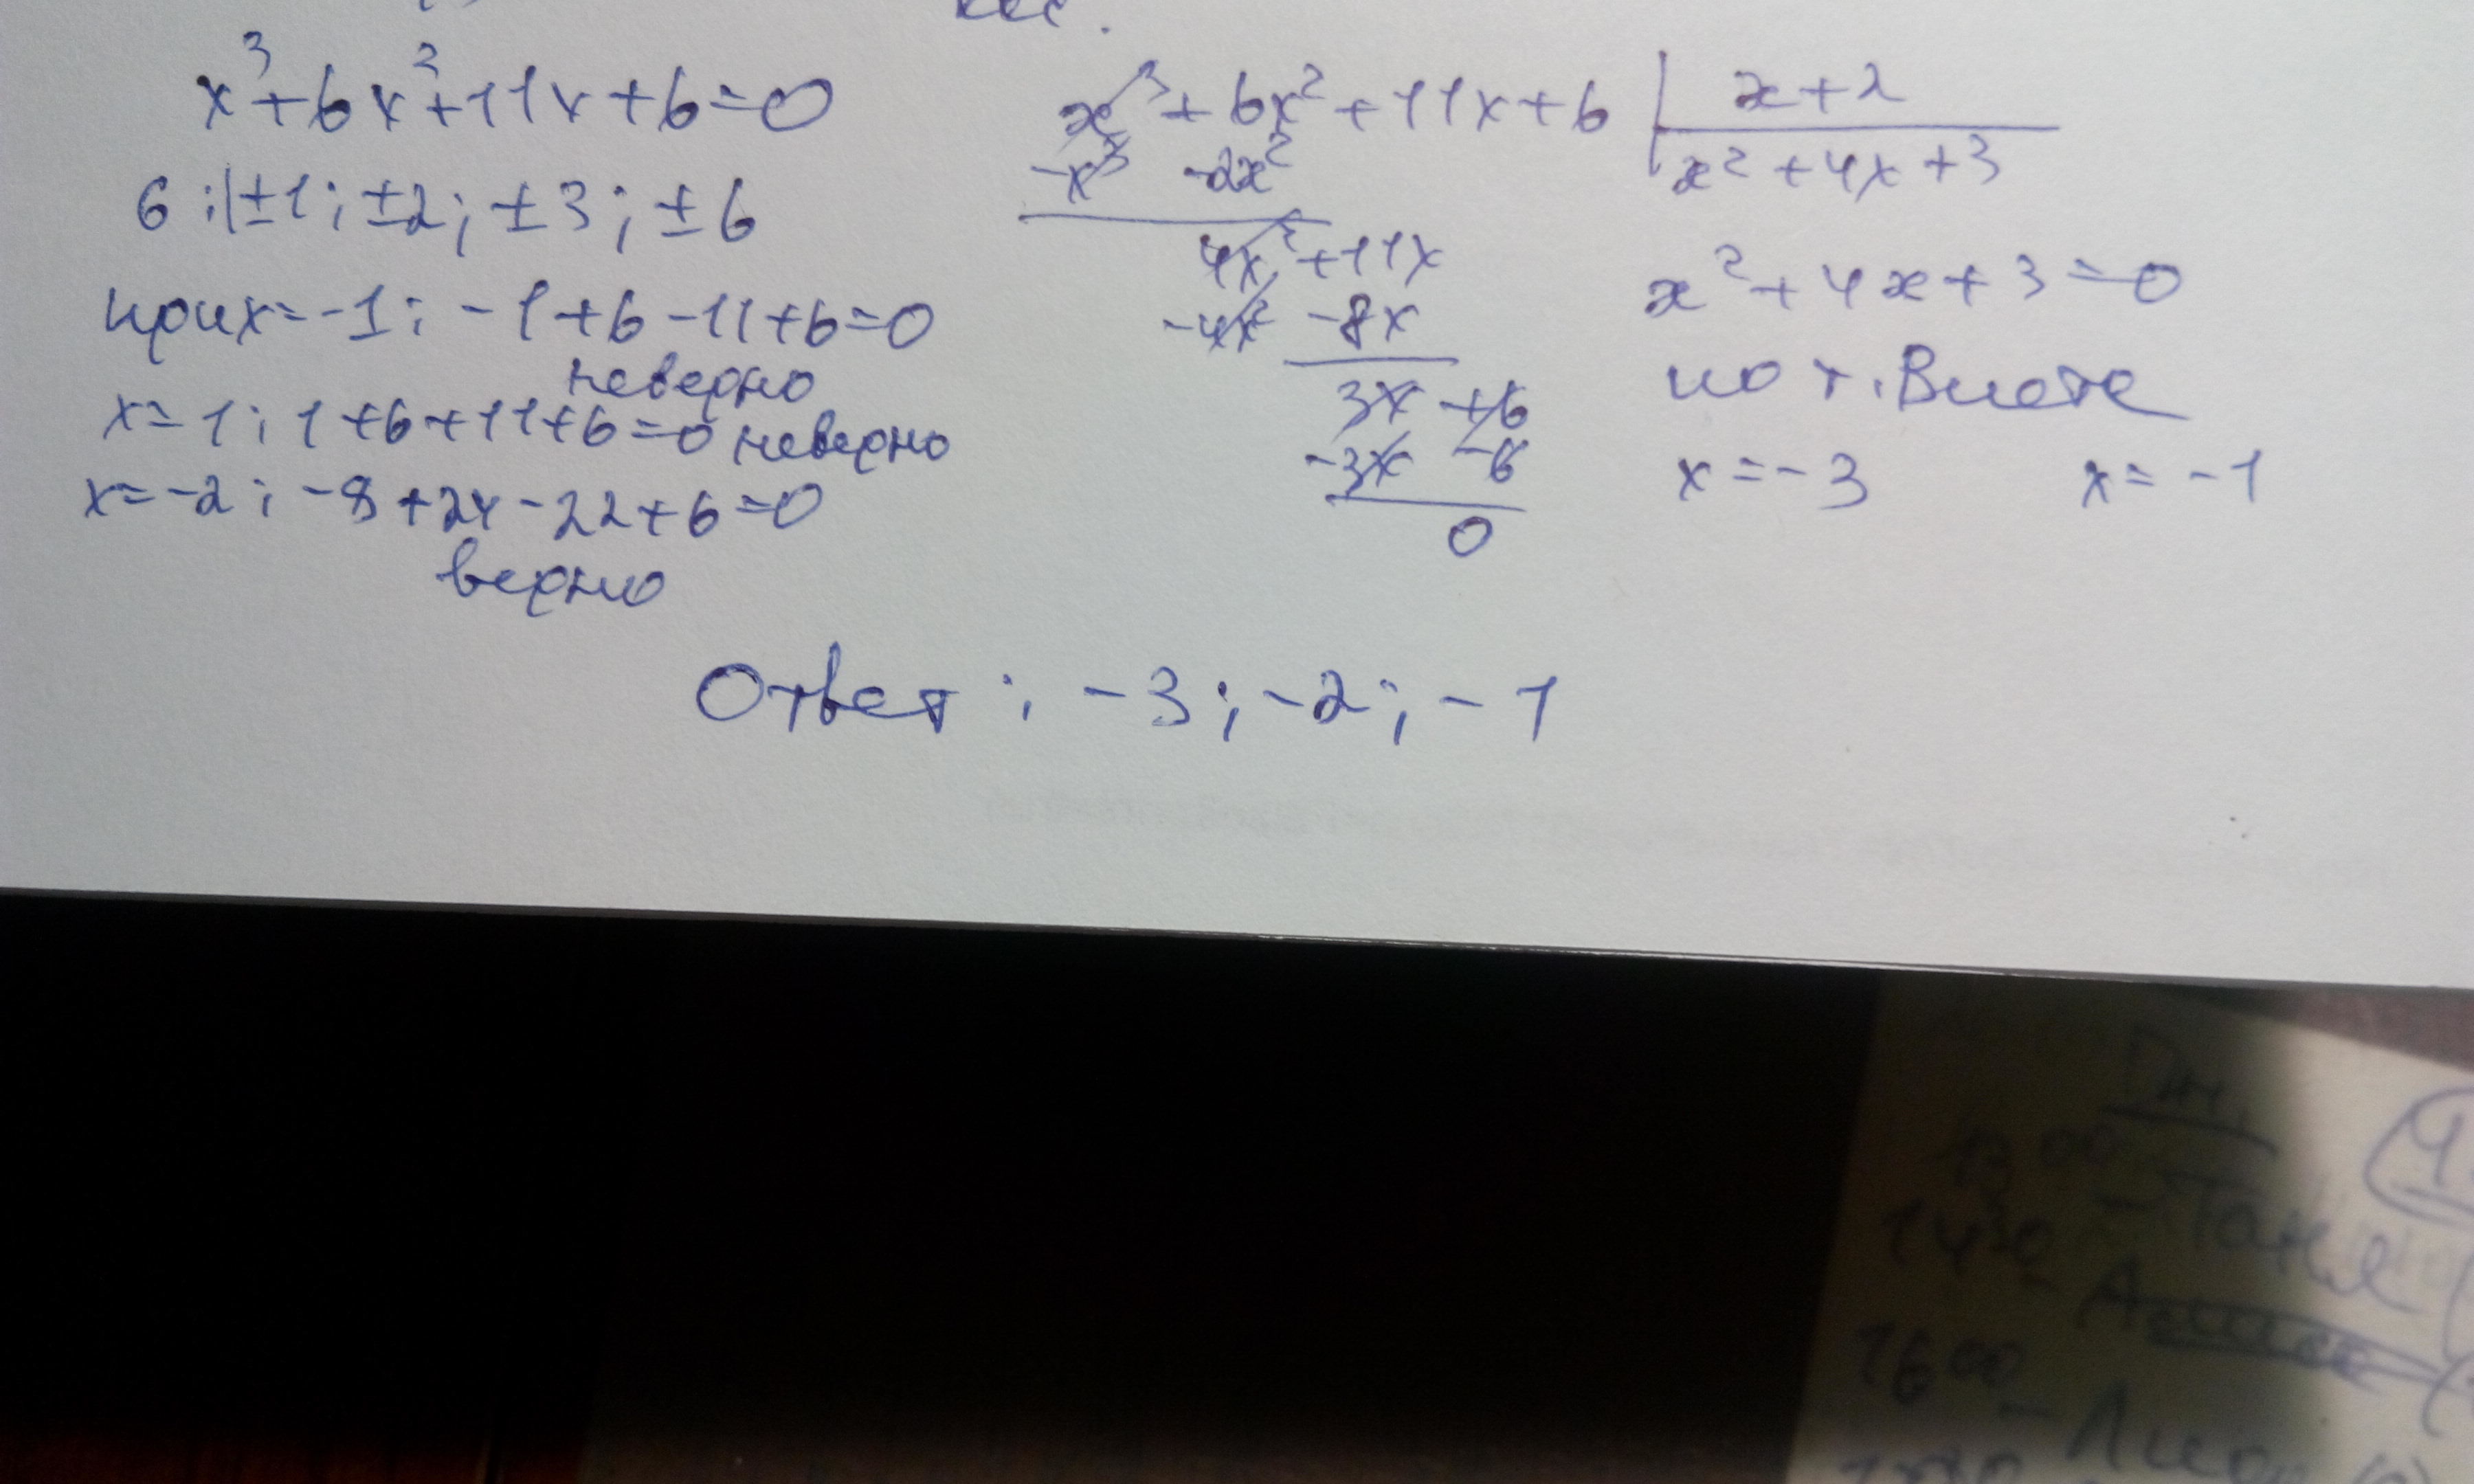 x³+6x²+11x+6=0
6 : ±1; ±2; ±3; ±6
при x=-1: -1+6-11+6=0
неверно
x=1; 1+6+11+6=0 неверно
x=-2; -8+24-22+6=0
верно
x³+6x²+11x+6 | x+2
-x³ -2x² | x²+4x+3
4x²+11x
-4x² -8x
3x+6
-3x -6
0
x²+4x+3=0
по т. Виета
x=-3 x=-1
Ответ: -3; -2; -1
1430
1600